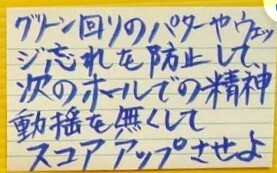 グリーン回りのパターやウェッ
ジ忘れを防止して
次のホールでの精神
動揺を無くして
スコアアップさせよ